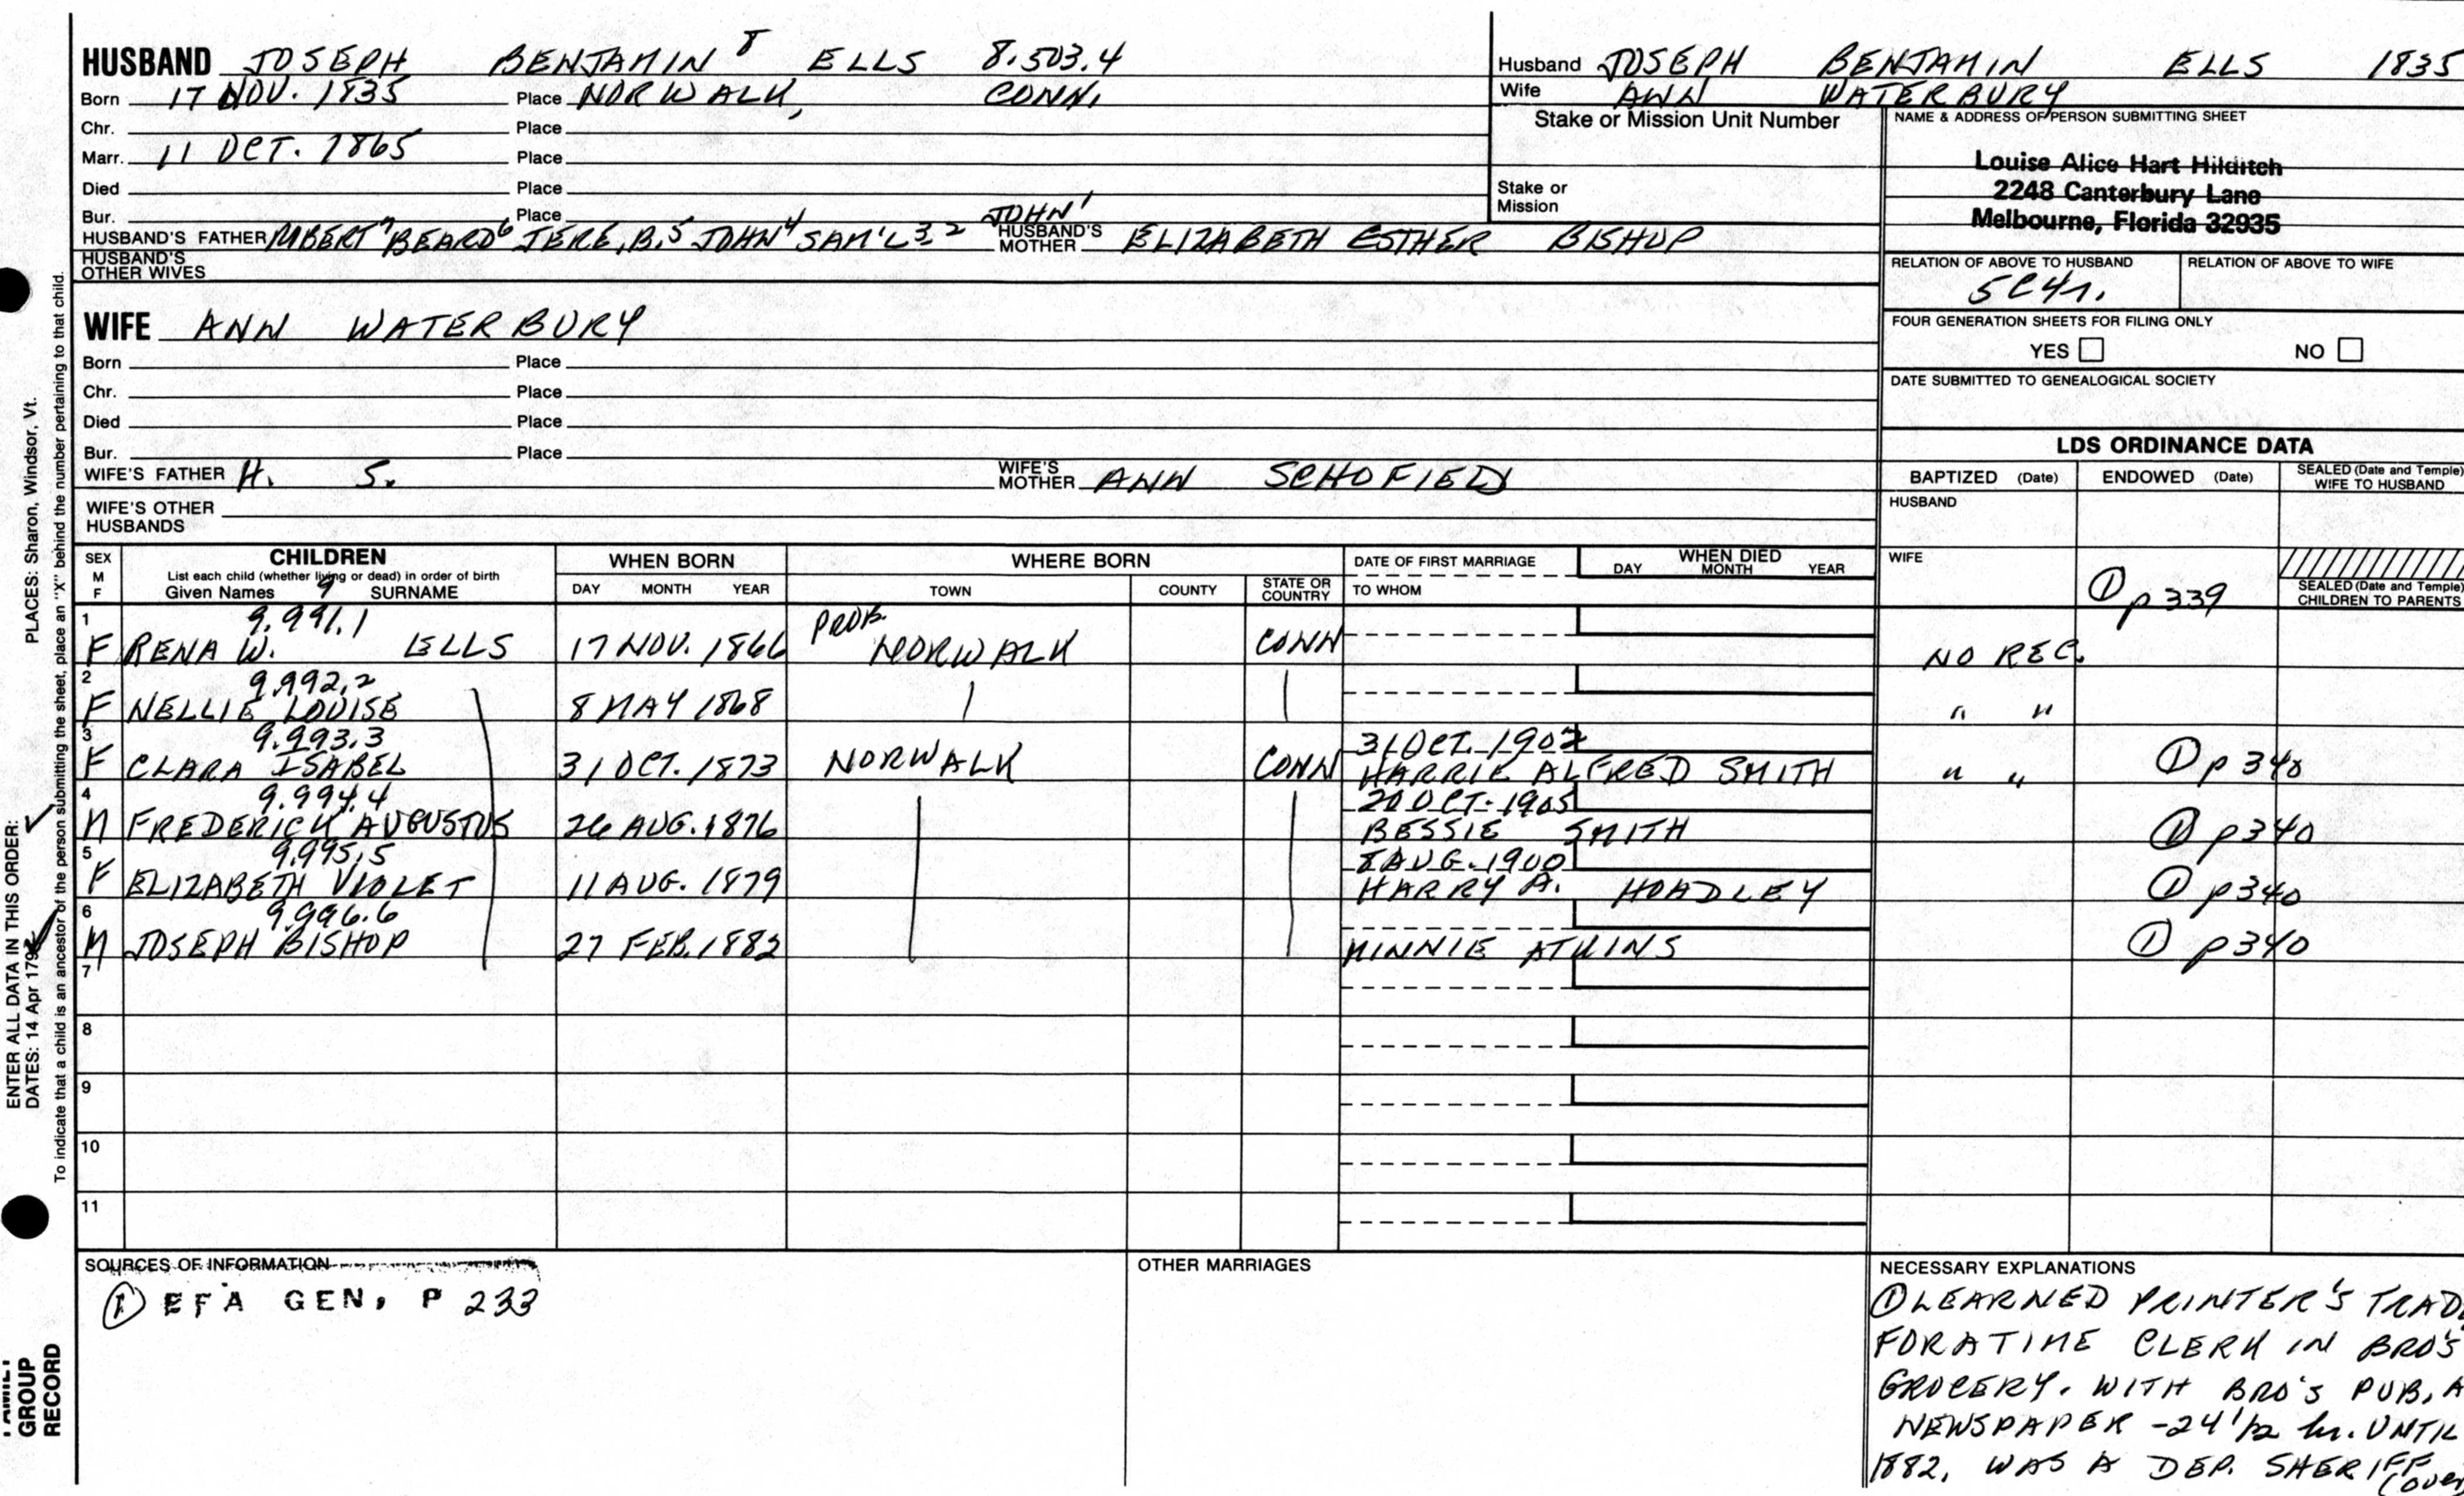 HUSBAND JOSEPH BENJAMIN 8 ELLS 8.503.4
Born 17 NOV. 1835 Place NORWALK, CONN.
Chr. Place
Marr. 11 OCT. 1865 Place
Died Place
Bur. Place
HUSBAND'S FATHER 7 BEARD 6 JERE. B. 5 JOHN 4 SAM'L 3 2 JOHN 1 HUSBAND'S MOTHER ELIZABETH ESTHER BISHOP
HUSBAND'S OTHER WIVES
Husband JOSEPH BENJAMIN ELLS 1835
Wife ANN WATERBURY
Stake or Mission Unit Number
Stake or Mission
NAME & ADDRESS OF PERSON SUBMITTING SHEET
Louise Alice Hart Hilditch
2248 Canterbury Lane
Melbourne, Florida 32935
RELATION OF ABOVE TO HUSBAND RELATION OF ABOVE TO WIFE
5C4r.
FOUR GENERATION SHEETS FOR FILING ONLY
YES NO
DATE SUBMITTED TO GENEALOGICAL SOCIETY
WIFE ANN WATERBURY
Born Place
Chr. Place
Died Place
Bur. Place
WIFE'S FATHER H. S. WIFE'S MOTHER ANN SCHOFIELD
WIFE'S OTHER HUSBANDS
LDS ORDINANCE DATA
BAPTIZED (Date) ENDOWED (Date) SEALED (Date and Temple) WIFE TO HUSBAND
HUSBAND
WIFE ① p339
SEALED (Date and Temple) CHILDREN TO PARENTS
SEX M F
CHILDREN
List each child (whether living or dead) in order of birth
Given Names 9 SURNAME
WHEN BORN
DAY MONTH YEAR
WHERE BORN
TOWN COUNTY STATE OR COUNTRY
DATE OF FIRST MARRIAGE
TO WHOM
WHEN DIED
DAY MONTH YEAR
1 9.991.1 PROB.
F RENA W. ELLS 17 NOV. 1866 NORWALK CONN NO REC.
2 9.992.2
F NELLIE LOUISE 8 MAY 1868 " "
3 9.993.3 31 OCT. 1902
F CLARA ISABEL 31 OCT. 1873 NORWALK CONN HARRIE ALFRED SMITH " " ① p340
4 9.994.4 20 OCT. 1905
M FREDERICK AUGUSTUS 26 AUG. 1876 BESSIE SMITH ① p340
5 9.995.5 8 AUG. 1900
F ELIZABETH VIOLET 11 AUG. 1879 HARRY A. HOADLEY ① p340
6 9.996.6
M JOSEPH BISHOP 27 FEB. 1882 MINNIE ATKINS ① p340
7
8
9
10
11
SOURCES OF INFORMATION
① EFA GEN, P 233
OTHER MARRIAGES
NECESSARY EXPLANATIONS
① LEARNED PRINTER'S TRAD
FOR A TIME CLERK IN BRO'S
GROCERY. WITH BRO'S PUB. A
NEWSPAPER - 24 1/2 UNTIL
1882. WAS A DEP. SHERIFF
(over
ENTER ALL DATA IN THIS ORDER:
DATES: 14 Apr PLACES: Sharon, Windsor, Vt.
To indicate that a child is an ancestor of the person submitting the sheet, place an "X" behind the number pertaining to that child.
FAMILY
GROUP
RECORD